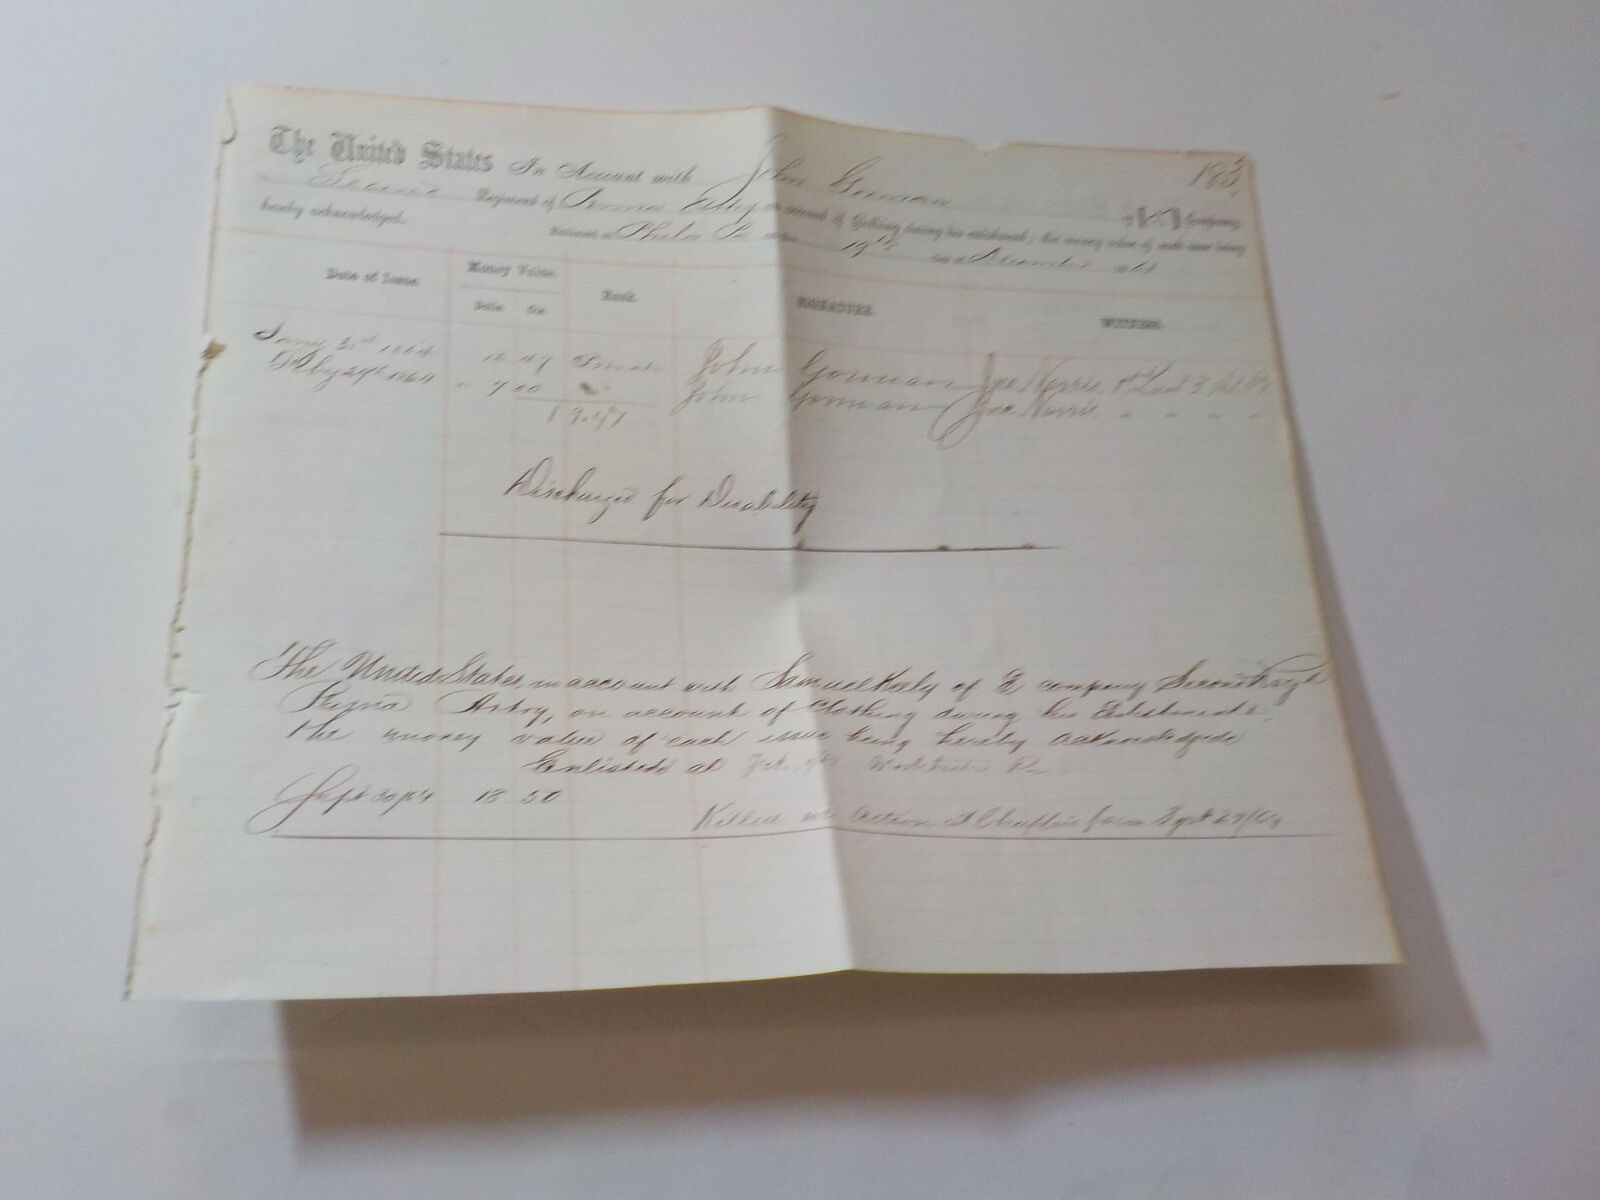 183
The United States In Account with John Gorman
Regiment of Penna Arty on account of Clothing during his enlistment; the money value of each issue being
hereby acknowledged. Enlisted at Phila Pa 19th day of December
Date of Issue. Money Value. Rank. SIGNATURE. WITNESS.
Dolls. Cts.
Jany 31st 1864 12 47 Private John Gorman Jno Norris 1st Lieut
Feby 29th 1864 " 7 00 " John Gorman Jno Norris " " " "
19.47
Discharged for Disability
The United States in account with Samuel Keely of E company Second Regt
Penna Artry, on account of Clothing during his Enlistment,
the money value of each issue being hereby acknowledged
Enlisted at Pa
Sept 30/64 18 50
Killed in action at Chaffins farm Sept 29/64